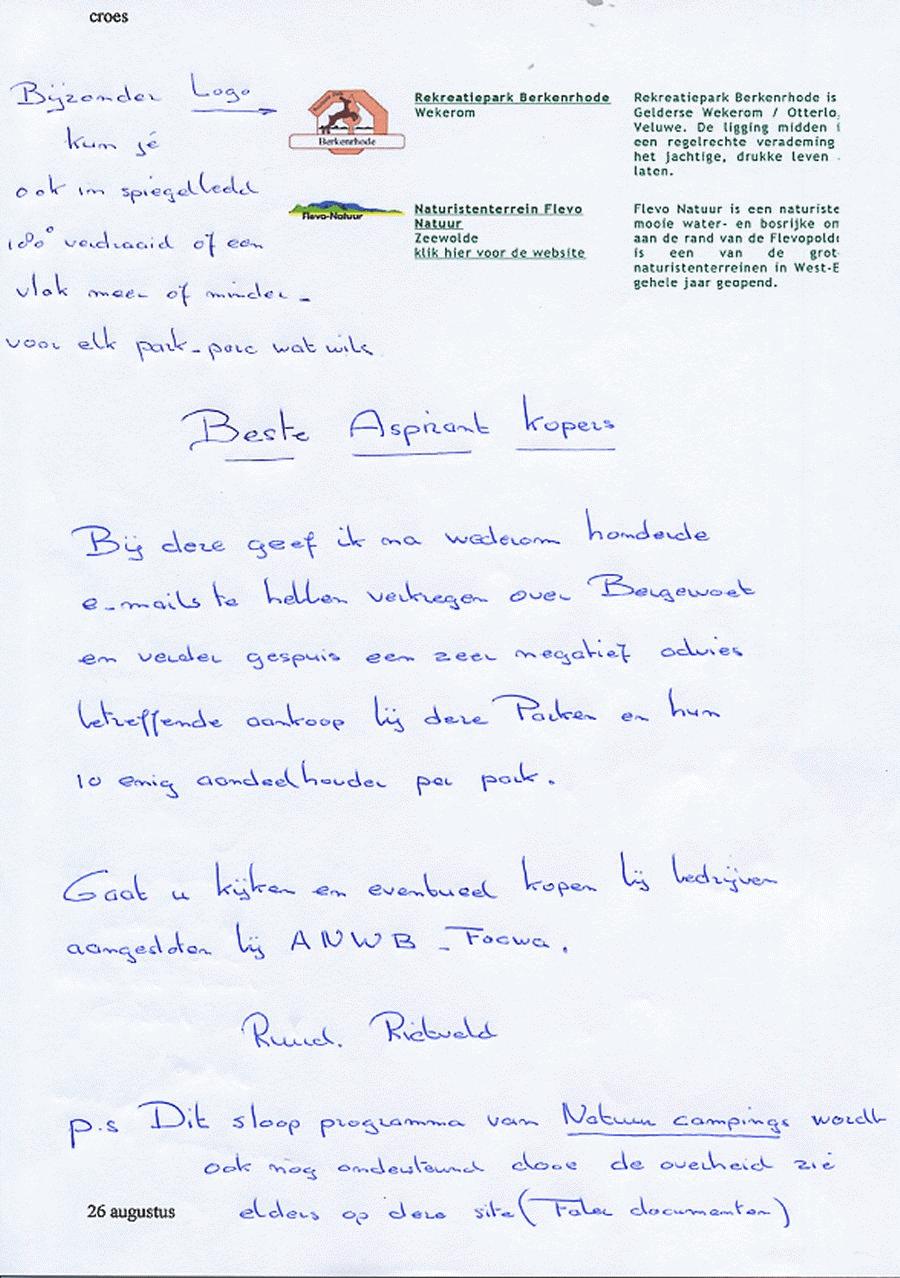 croes
Bijzonder Logo
kun je
ook in spiegelbeeld
180° verdraaid of een
vlak meer of minder -
voor elk park - parc wat wils
Berkenrhode
Rekreatiepark Berkenrhode
Wekerom
Rekreatiepark Berkenrhode is
Gelderse Wekerom / Otterlo,
Veluwe. De ligging midden i
een regelrechte verademing
het jachtige, drukke leven
laten.
Flevo-Natuur
Naturistenterrein Flevo
Natuur
Zeewolde
klik hier voor de website
Flevo Natuur is een naturiste
mooie water- en bosrijke om
aan de rand van de Flevopolde
is een van de grot
naturistenterreinen in West-E
gehele jaar geopend.
Beste Aspirant kopers
Bij deze geef ik na wederom honderde
e-mails te hebben verkregen over
en verder gespuis een zeer negatief advies
betreffende aankoop bij deze Parken en hun
10 enig aandeelhouder per park.
Gaat u kijken en eventueel kopen bij bedrijven
aangesloten bij ANWB - Focwa.
Ruud. Rietveld
p.s Dit sloop programma van Natuur campings wordt
ook nog ondersteund door de overheid zie
elders op deze site (Foler documenten)
26 augustus